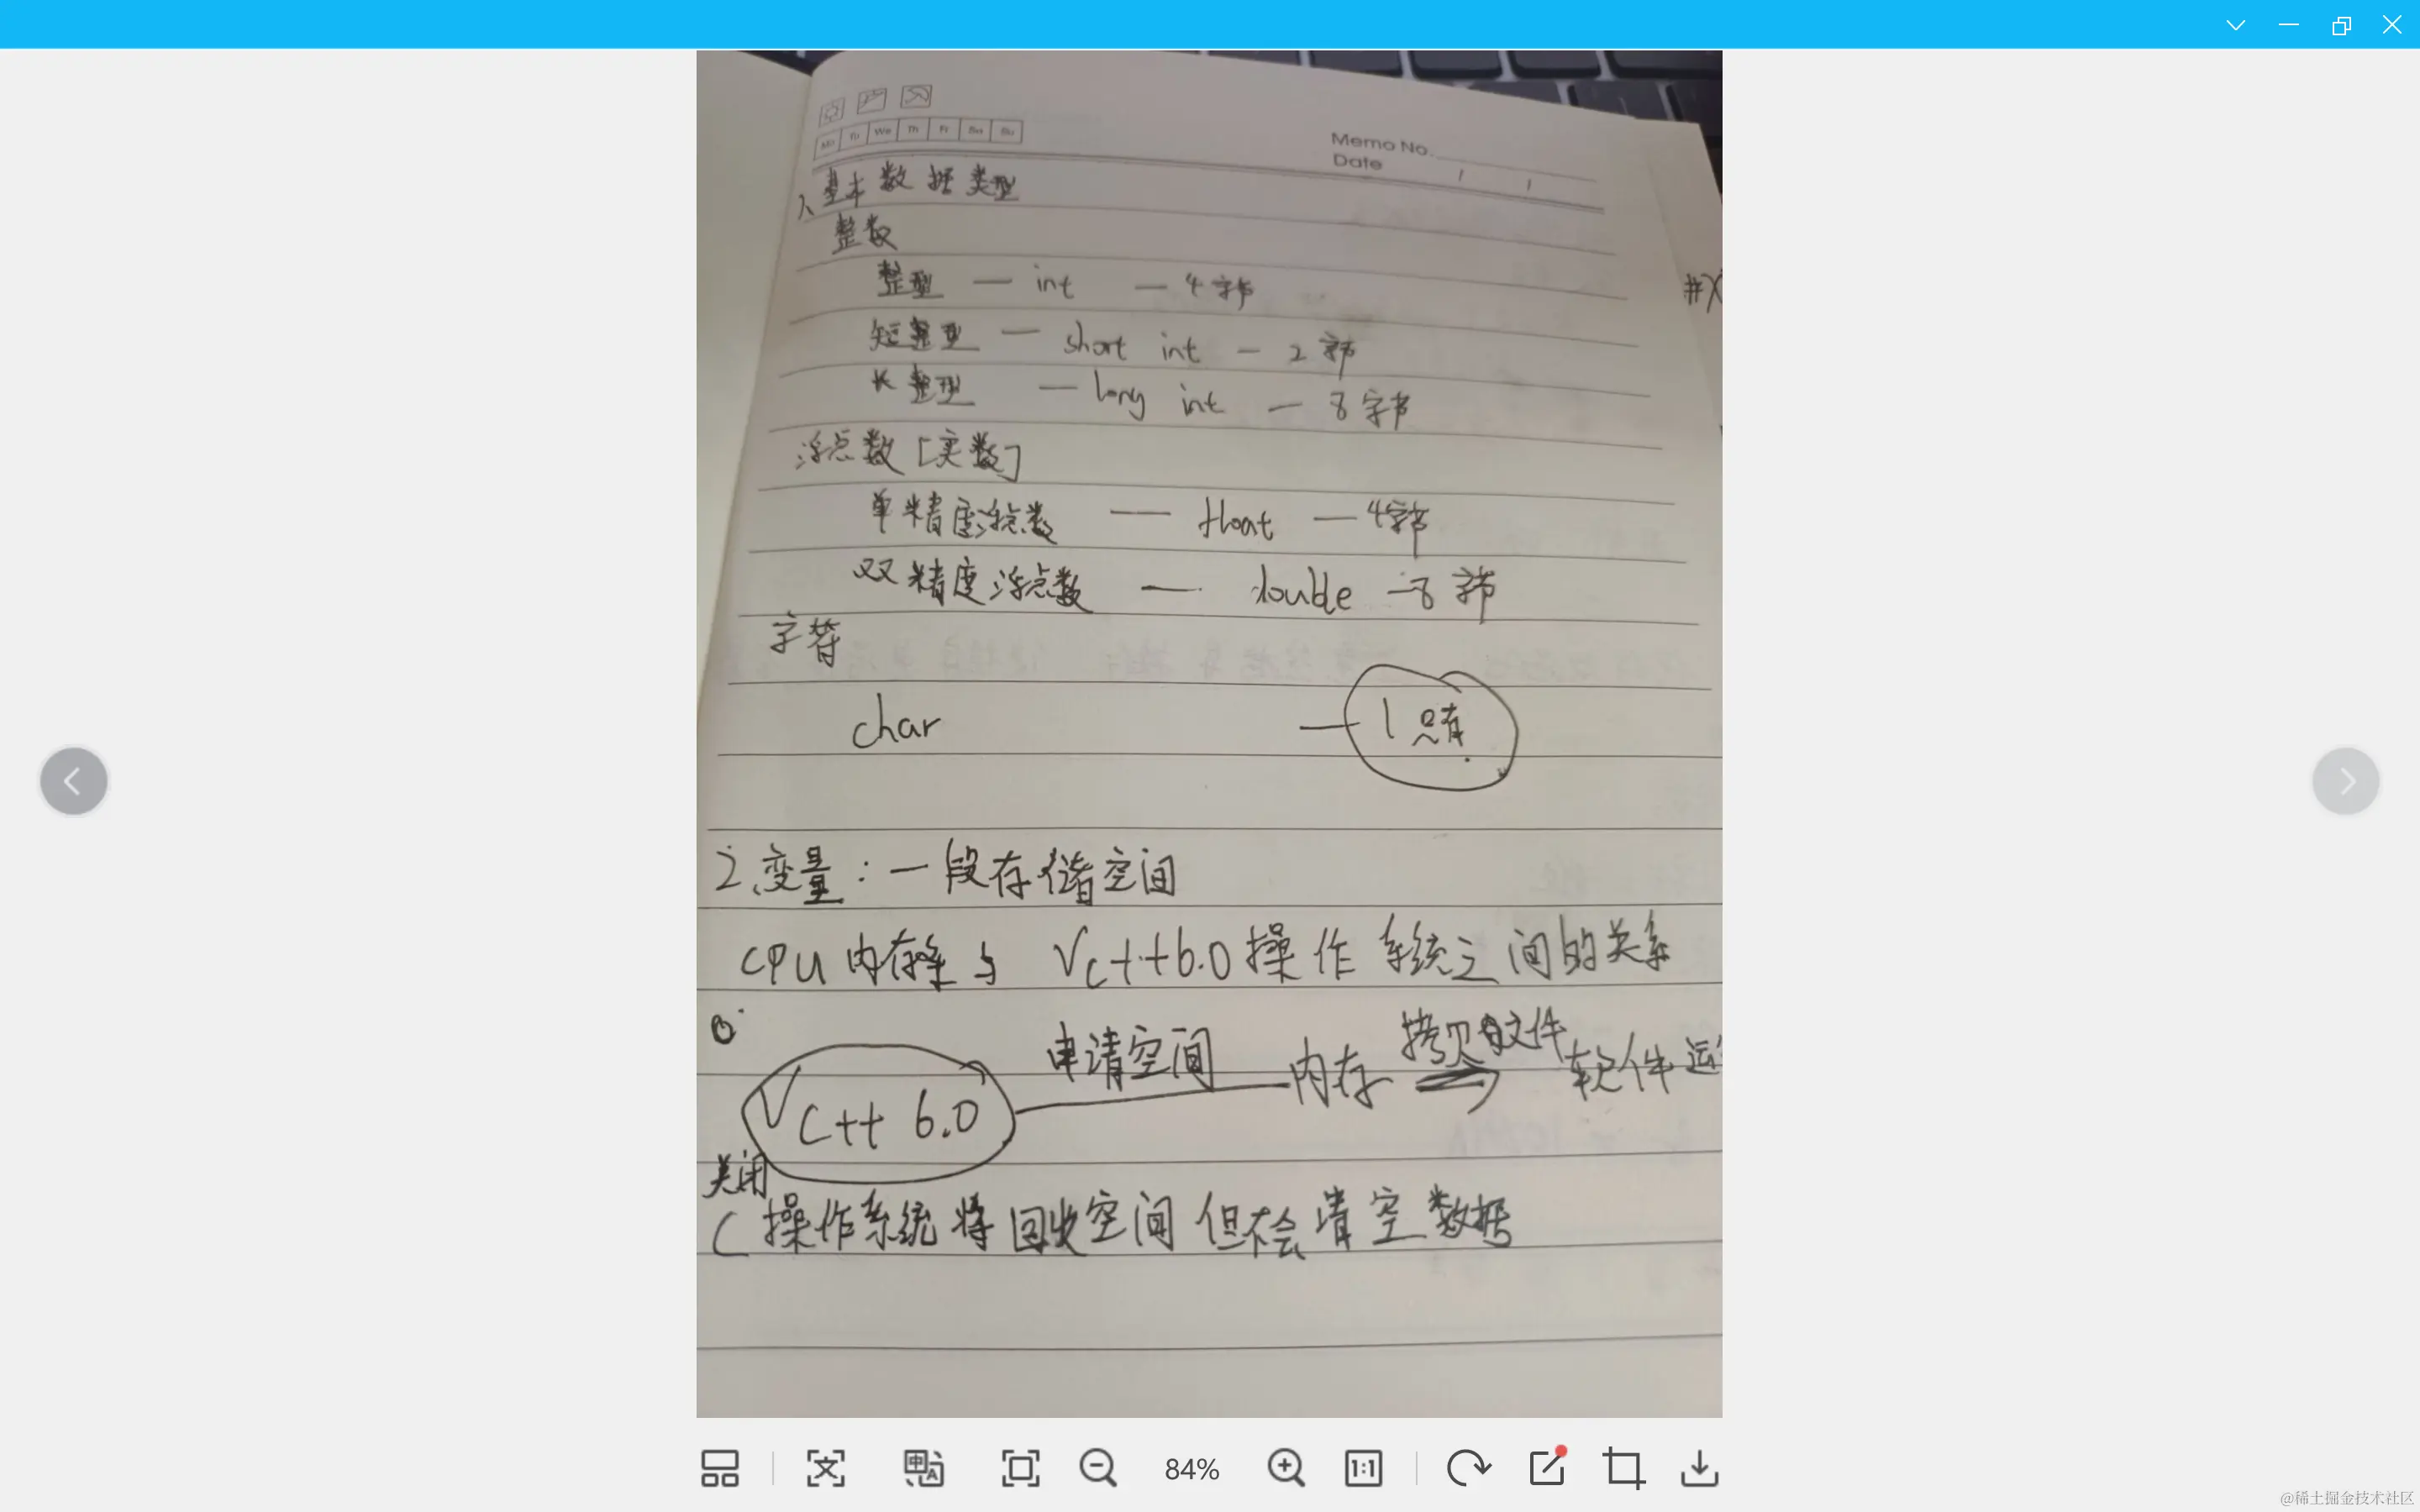 Mo Tu We Th Fr Sa Su
Memo No.
Date / /
1、基本数据类型
整数
整型 — int — 4字节
短整型 — short int — 2字节
长整型 — long int — 8字节
浮点数[实数]
单精度浮点数 — float — 4字节
双精度浮点数 — double — 8字节
字符
char — 1
2、变量：一段存储空间
CPU 内存条与 VC++6.0 操作系统之间的关系
VC++ 6.0 申请空间 内存 拷贝 文件 软件运
关闭
操作系统将回收空间但不会清空数据
84%
1:1
@稀土掘金技术社区